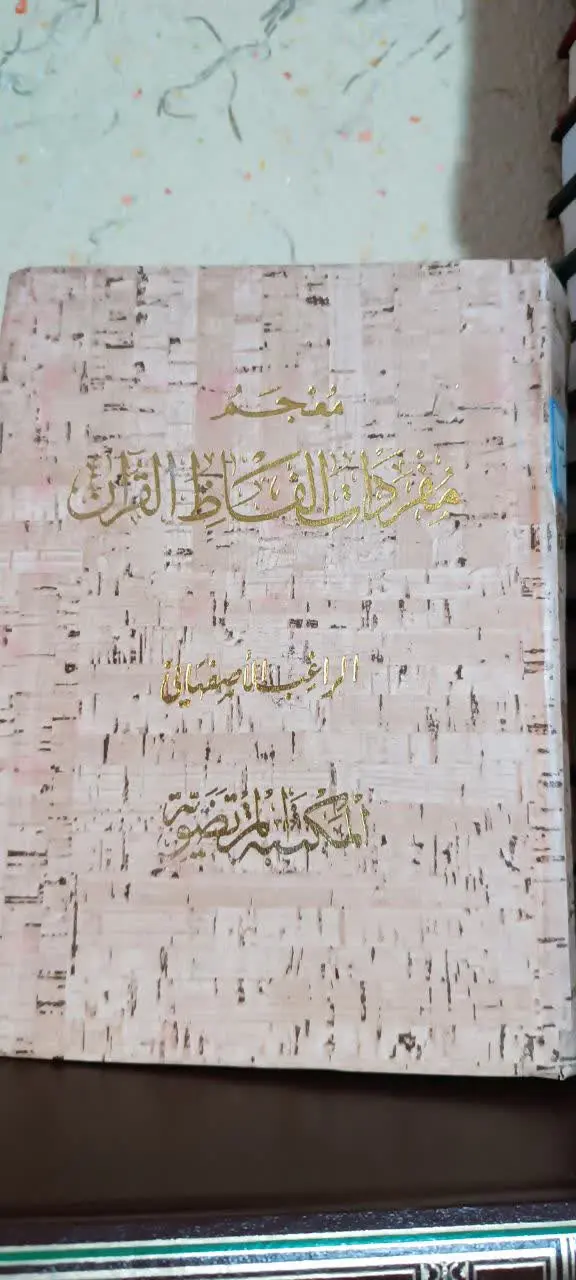 مُعْجَمُ
مُفْرَدَاتِ الْفَاظِ الْقُرْآن
الراغب الأصفهاني
الْمَكْتَبَةُ الْمُرْتَضَوِيَّة